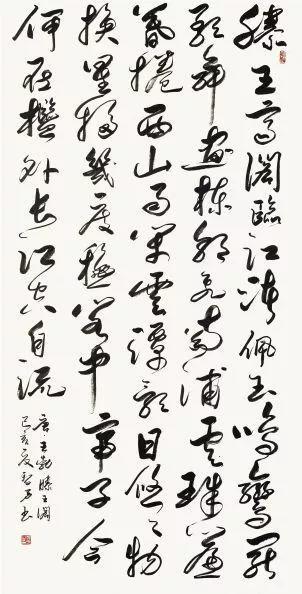 滕王高阁臨江渚佩玉鳴鸞罷
歌舞畫棟朝飛南浦云珠簾
暮捲西山雨閑雲潭影日悠々物
換星移幾度秋閣中帝子今
何在檻外長江空自流
唐王勃滕王阁
己亥夏书